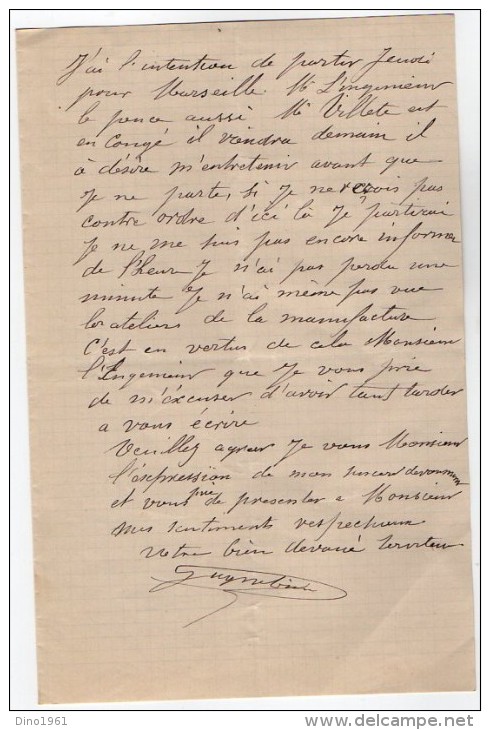 J'ai l'intention de partir Jeudi
pour Marseille Mr L'ingenieur
le pence aussi Mr Villete est
en congé il viendra demain il
à désire m'entretenir avant que
Je ne parte, si Je ne reçois pas
contre ordre d'ici là Je partirai
Je ne me suis pas encore informer
de l'heure Je n'ai pas perdu une
minute Je n'ai même pas vue
les ateliers de la manufacture
C'est en vertus de cela Monsieur
l'Ingenieur que Je vous prie
de m'éxcuser d'avoir tant tarder
a vous écrire
Veuillez agreer Je vous Monsieur
l'éxpression de mon sincer devoument
et vous prie de presenter a Monsieur
mes sentiments respectueux
Votre bien devoué serviteur
Dino1961
www.delcampe.net